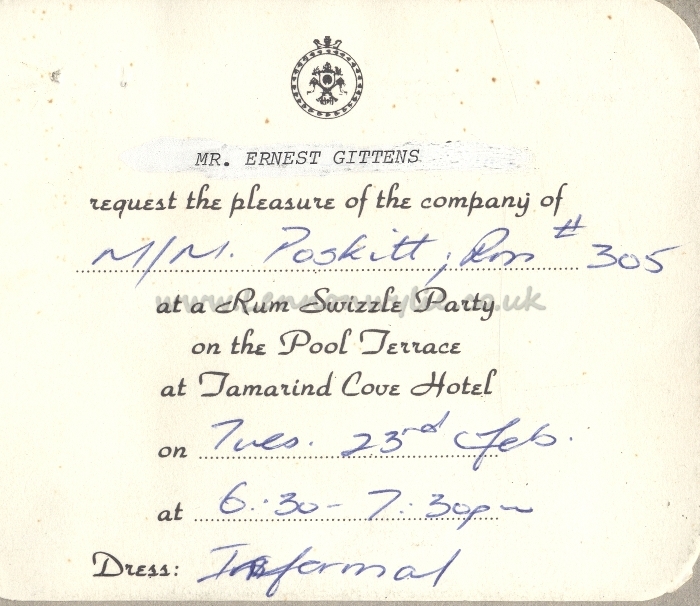 MR. ERNEST GITTENS
request the pleasure of the company of
M/M. Poskitt, Rm # 305
at a Rum Swizzle Party
on the Pool Terrace
at Tamarind Cove Hotel
on Tues. 23rd Feb.
at 6:30 - 7:30pm
Dress: Informal